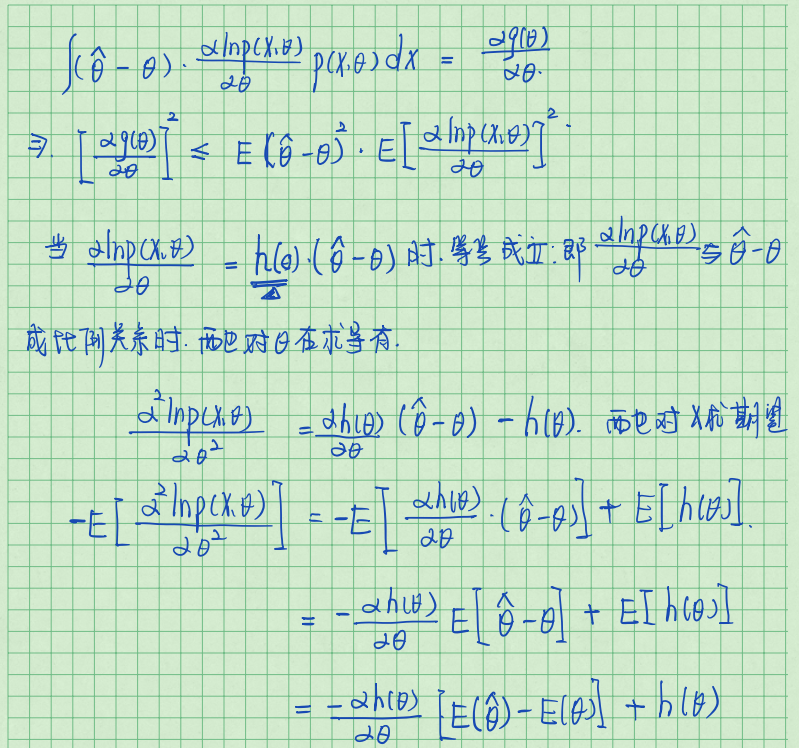 ∫(θ̂ - θ) · ∂lnp(X,θ)/∂θ p(X,θ) dx = ∂g(θ)/∂θ.
⇒ [∂g(θ)/∂θ]² ≤ E(θ̂ - θ)² · E[∂lnp(X,θ)/∂θ]².
当 ∂lnp(X,θ)/∂θ = h(θ)·(θ̂ - θ) 时. 等号成立: 即 ∂lnp(X,θ)/∂θ 与 θ̂ - θ
成比例关系时. 两边对θ在求导有.
∂²lnp(X,θ)/∂θ² = ∂h(θ)/∂θ (θ̂ - θ) - h(θ). 两边对X求期望
-E[∂²lnp(X,θ)/∂θ²] = -E[∂h(θ)/∂θ · (θ̂ - θ)] + E[h(θ)].
= -∂h(θ)/∂θ E[θ̂ - θ] + E[h(θ)]
= -∂h(θ)/∂θ [E(θ̂) - E(θ)] + h(θ)